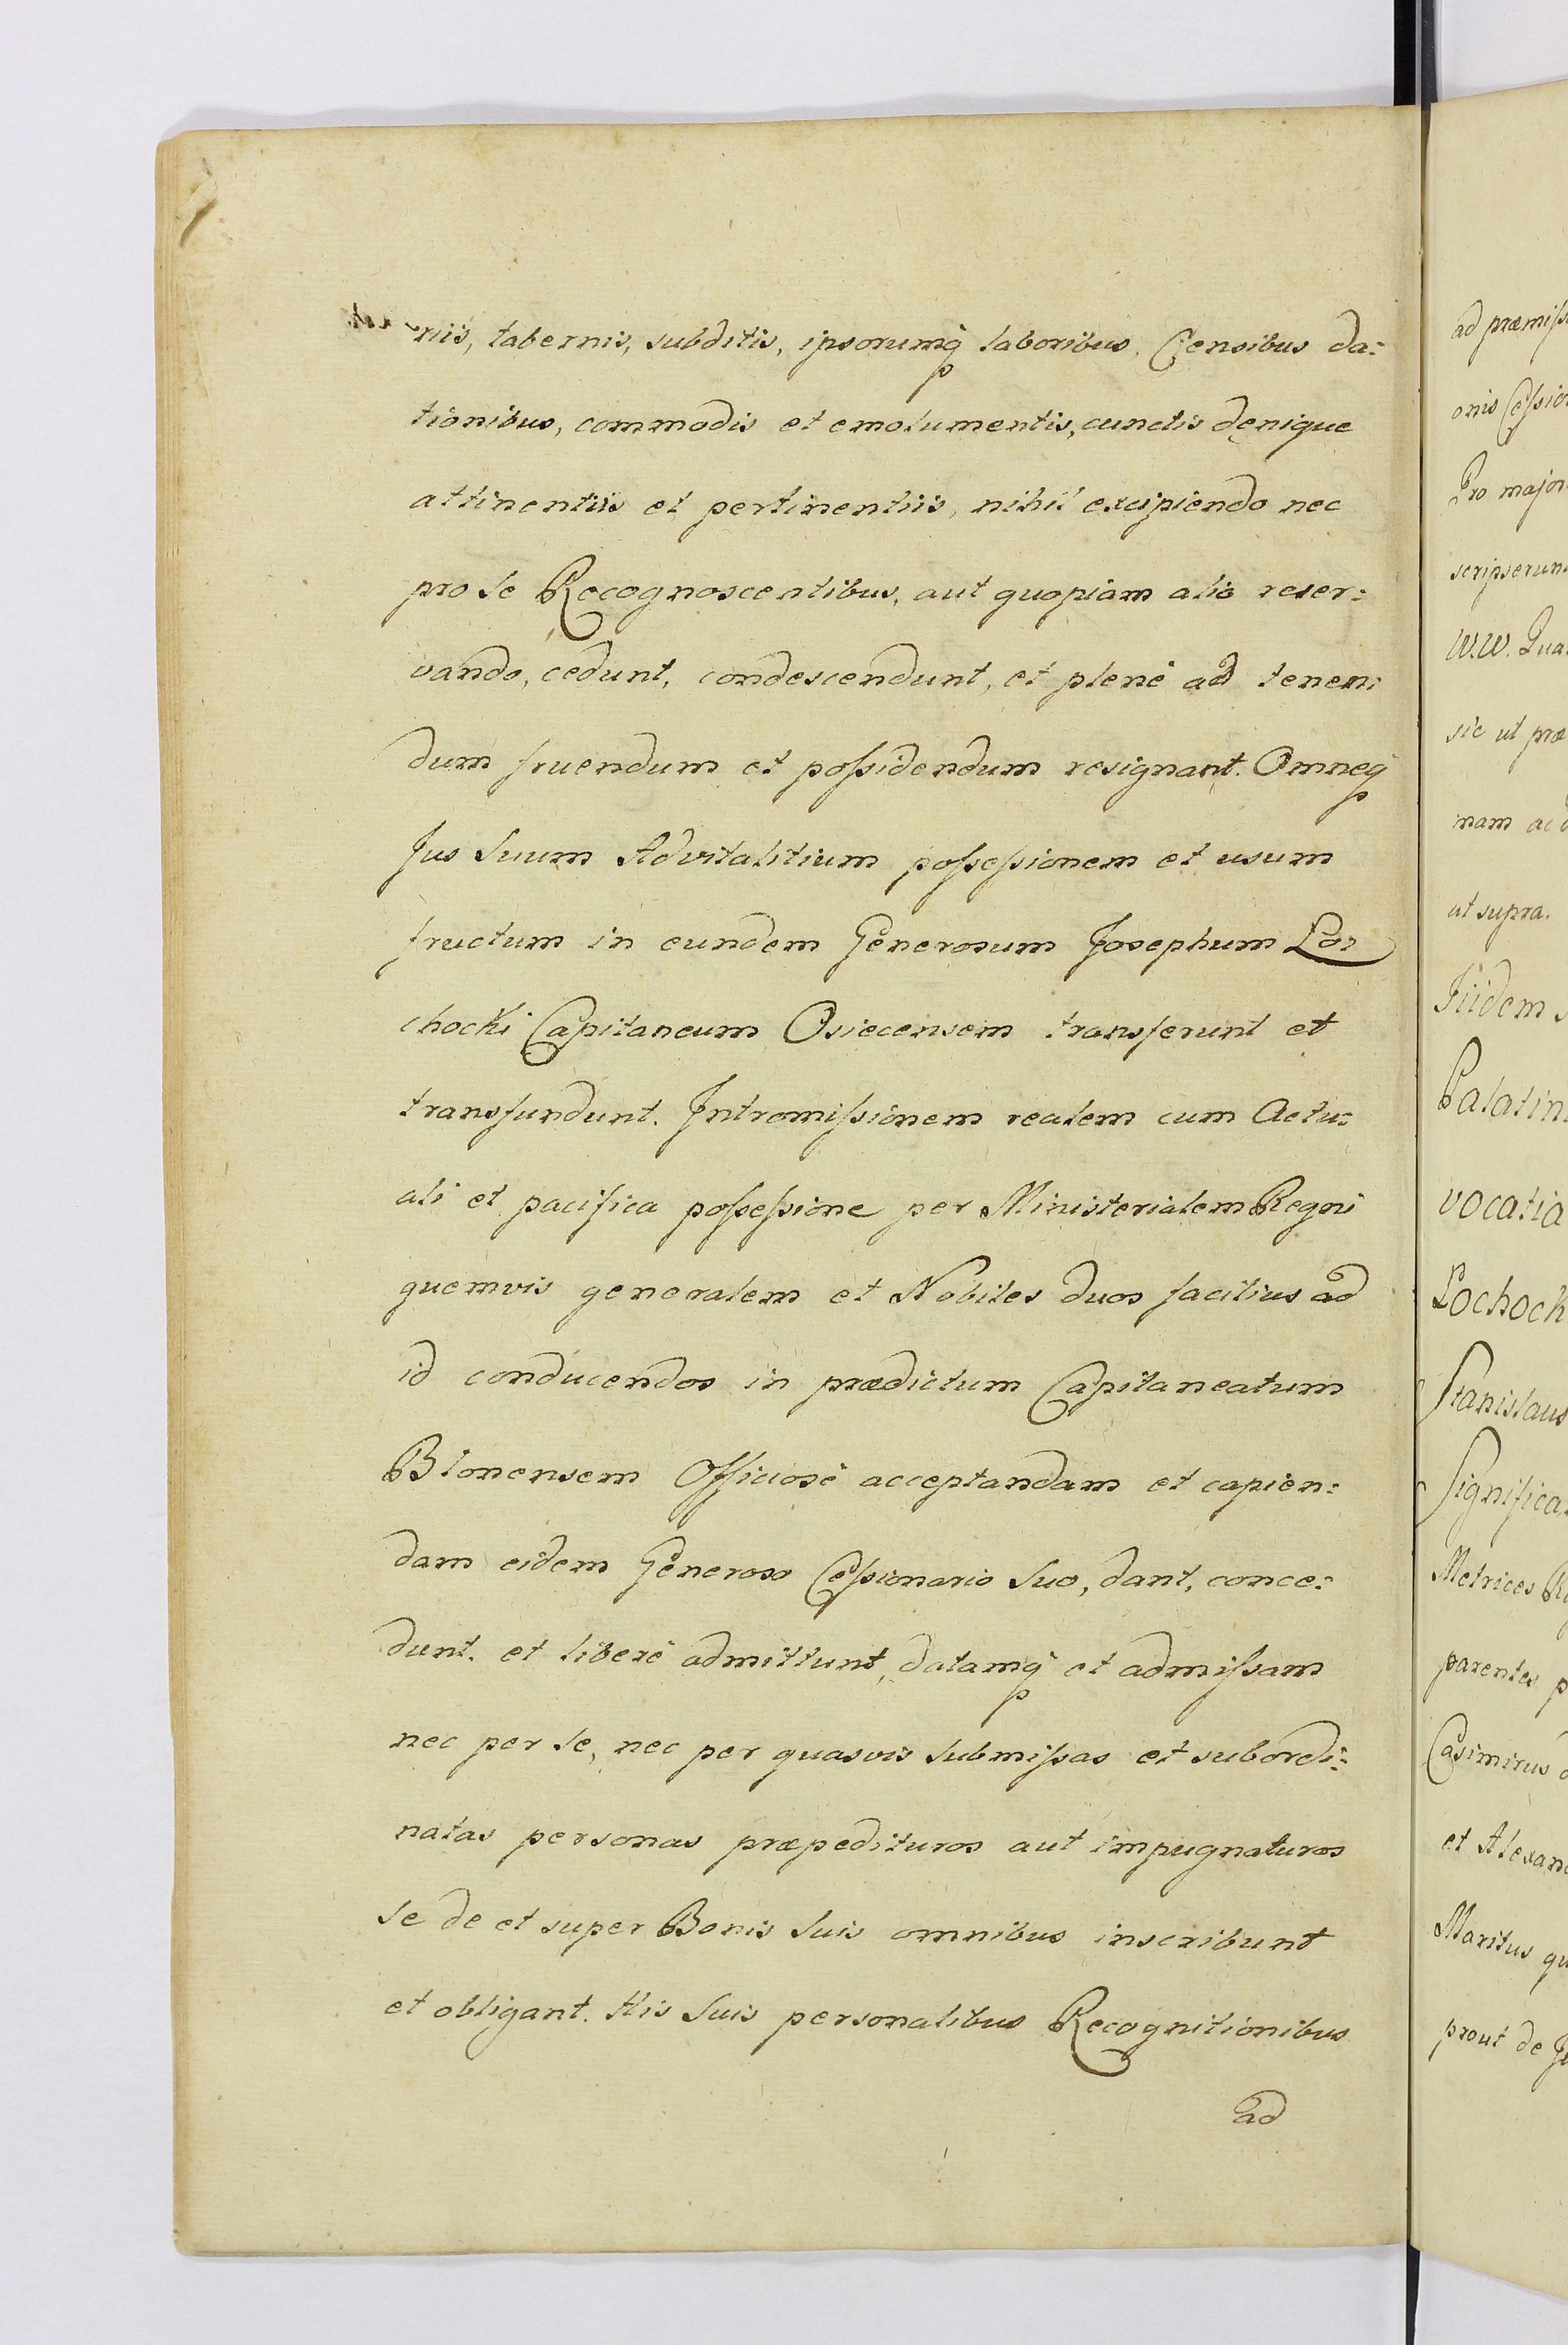 riis, tabernis, subditis, ipsorumq laboribus, Censibus da:
tionibus, commodis et emolumentis, cunctis denique
attinentiis et pertinentiis, nihil excipiendo nec
pro se Recognoscentibus, aut quopiam alio reser:
vando, cedunt, condescendunt, et plenè ad tenen:
dum fruendum et possidendum resignant. Omneq
Jus Suum Advitalitium possessionem et usum
fructum in eundem Generosum Josephum Lo:
chocki Capitaneum Osiecensem transferunt et
transfundunt. Intromissionem realem cum Actu:
ali et pacifica possessione per Ministerialem Regni
quemvis generalem et Nobiles duos facilius ad
id conducendos in prædictum Capitaneatum
Blonensem Officiosè acceptandam et capien:
dam eidem Generoso Cessionario Suo, dant, conce:
dunt, et liberè admittunt, datamq et admissam
nec per se, nec per quasvis submissas et subordi:
natas personas præpedituros aut impugnaturos
se de et super Bonis Suis omnibus inscribunt
et obligant. His Suis personalibus Recognitionibus
ad
ad præmiss
onis Cession
Pro major
scripserun
W.W. Qua
sic ut præ
mam ac
ut supra.
Iidem
Palatin
vocatia
Lochock
Stanislaus
Significa
Metrices
parentes p
Casimirus
et Alexan
Maritus qu
prout de Ju